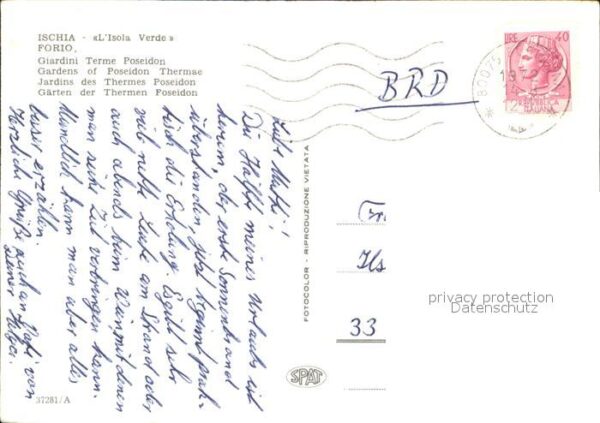 ISCHIA - «L'Isola Verde»
FORIO,
Giardini Terme Poseidon
Gardens of Poseidon Thermae
Jardins des Thermes Poseidon
Gärten der Thermen Poseidon
BRD
LIRE 40
80075
19
14
12
REPUBBLICA
ITALIANA
Die Hälfte meines Urlaubs ist
herum, der erste Sonnenbrand
überstanden, jetzt beginnt
die Erholung. Es gibt sehr
viele nette Leute am Strand oder
auch abends beim Wein, mit denen
man seine Zeit verbringen kann.
Mündlich kann man aber alles
besser erzählen.
Herzliche Grüße auch an Vati von
Deiner
FOTOCOLOR - RIPRODUZIONE VIETATA
33
privacy protection
Datenschutz
SPAT
37281/A